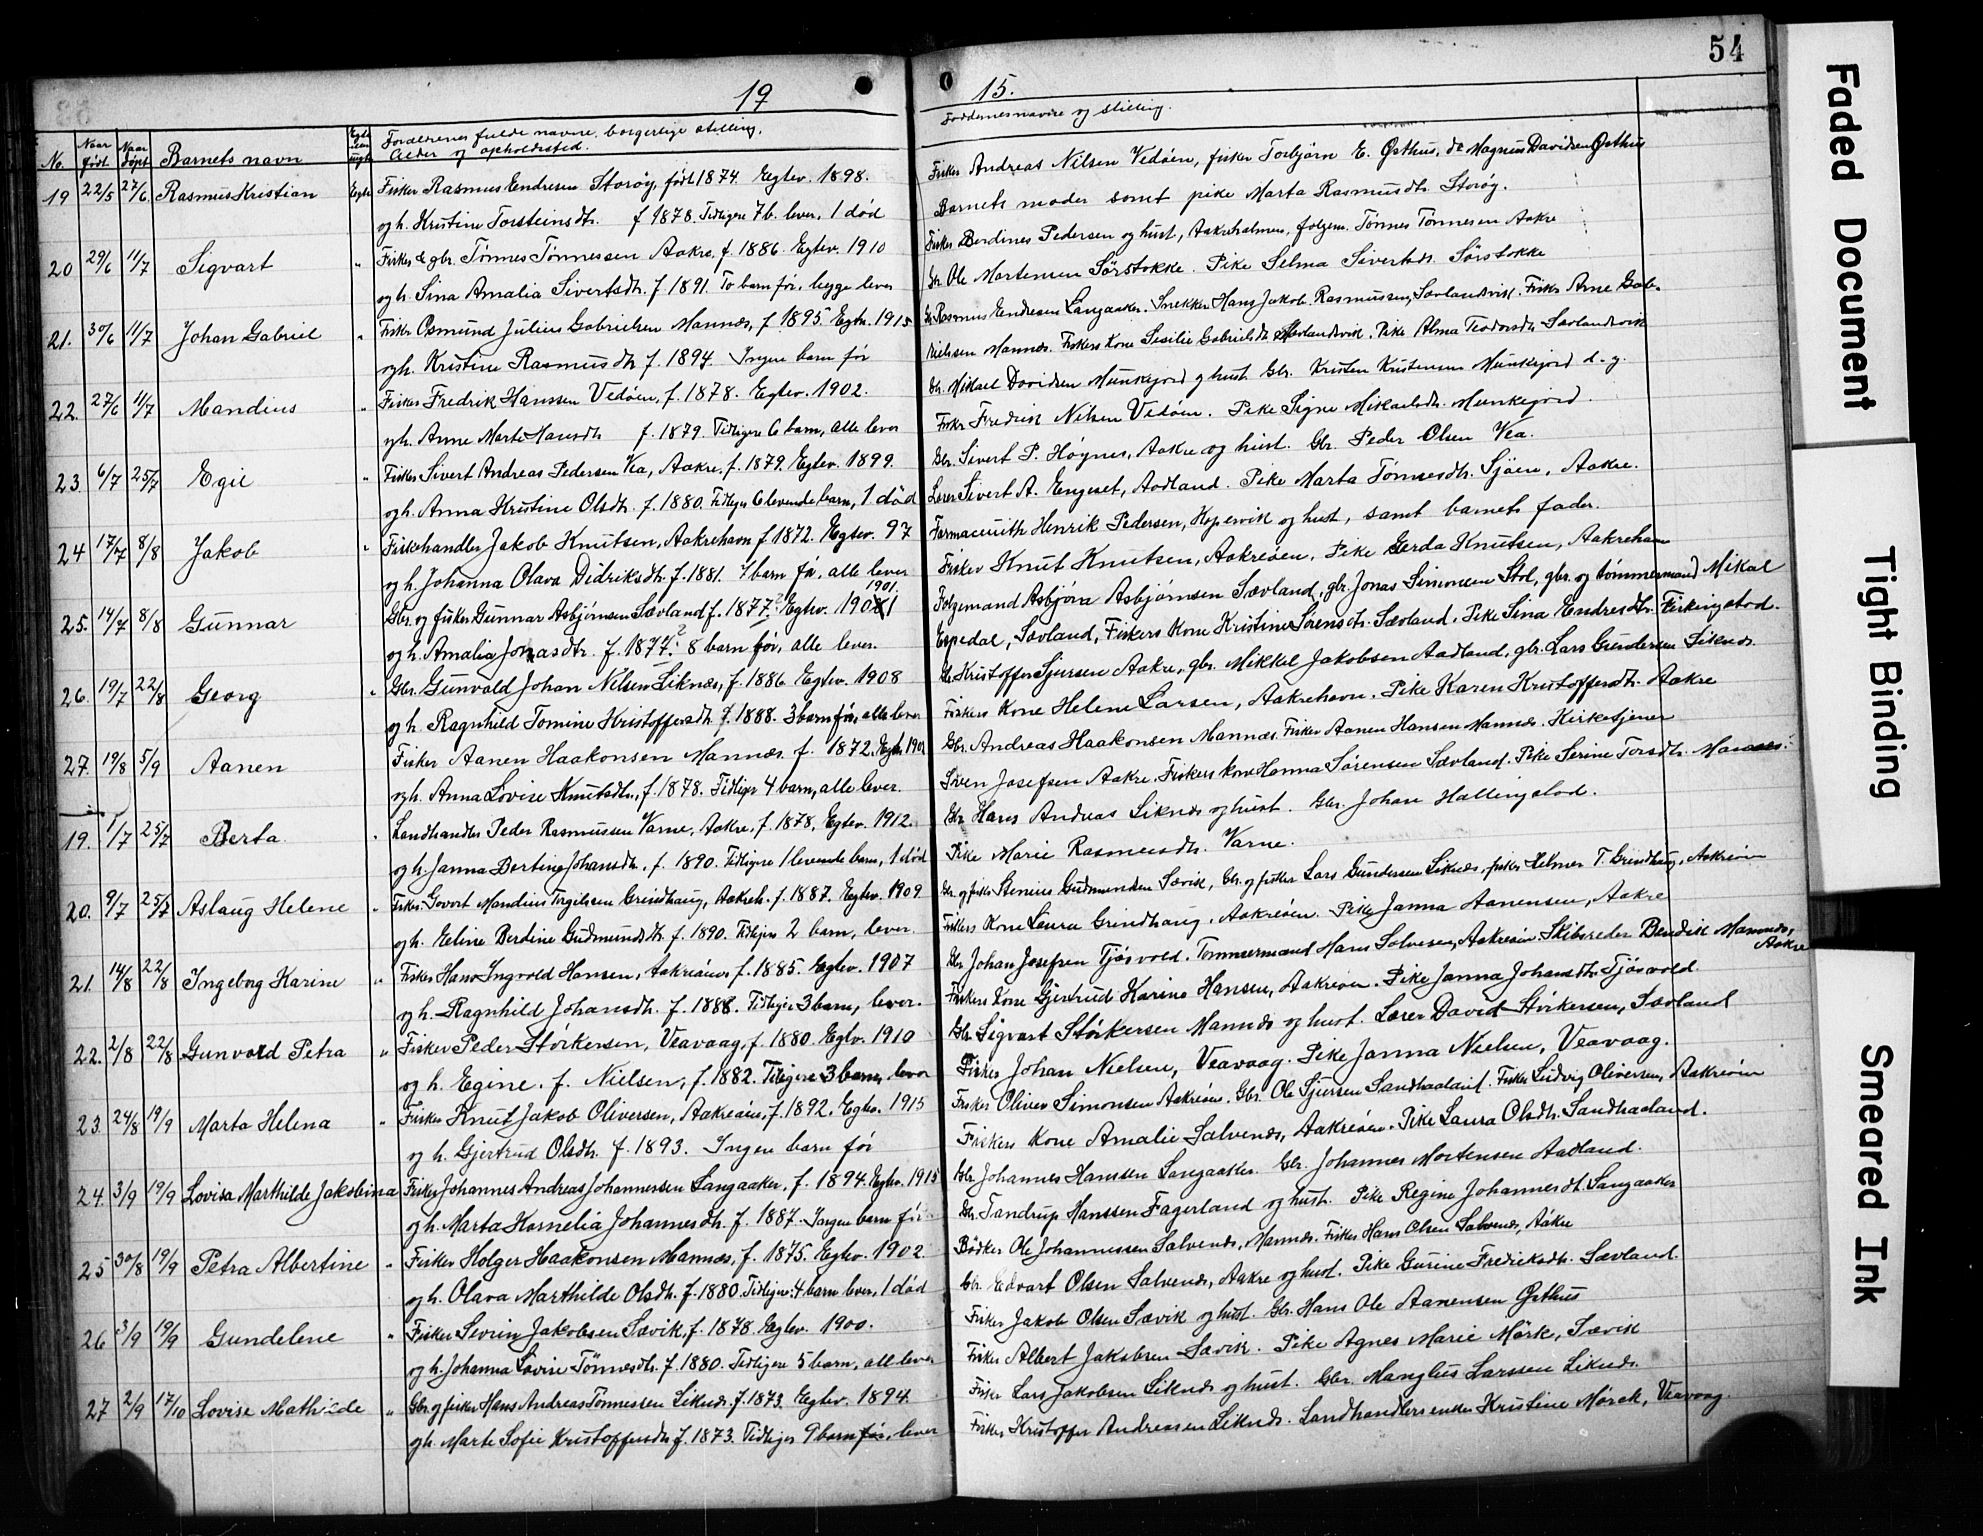 54
19 15.
No. Naar født Naar døpt Barnets navn Egte eller uegte Forældrenes fulde navne, borgerlige stilling,
Alder og opholdssted.
Faddernes navne og stilling.
19 22/5 27/6 Rasmus Kristian Egte Fisker Rasmus Endresen Storøy, født 1874. Egtev. 1898.
og h. Kristine Torsteinsdtr. f 1878. Tidligere 7 b. lever, 1 død
Fisker Andreas Nilsen Vedøen, fisker Torbjørn E. Østhus, do Magnus Davidsen Østhus
Barnets moder samt pike Marta Rasmusdtr. Storøy.
20 29/6 11/7 Sigvart " Fisker & gbr. Tønnes Tønnessen Aakre, f. 1886. Egtev. 1910
og h. Sina Amalia Sivertsdtr. f 1891. To barn før, begge lever
Fisker Berdines Pedersen og hust, Aakreholmen, følgem. Tønnes Tønnesen Aakre
Gbr. Ole Mortensen Sørstokke. Pike Selma Sivertsdtr. Sørstokke
21. 30/6 11/7 Johan Gabriel " Fisker Osmund Julius Gabrielsen Mannæs, f 1895. Egtev. 1915
og h. Kristine Rasmusdtr f. 1894. Ingen barn før
Gbr. Rasmus Endresen Langaaker. Snekker Hans Jakob Rasmussen, Sævlandsvik. Fisker Arne Gab-
rielsen Mannæs. Fiskers kone Sesilie Gabrielsdtr Sævlandsvik. Pike Alma Teodorsdtr Sævlandsvik
22. 27/6 11/7 Mandius " Fisker Fredrik Hanssen Vedøen, f. 1878. Egtev. 1902.
og h. Anne Marte Hansdtr f. 1879. Tidligere 6 barn, alle lever
Gbr. Mikael Davidsen Munkejord og hust Gbr. Kristen Kristensen Munkejord d. y.
Fisker Fredrik Nilsen Vedøen. Pike Signe Mikaelsdtr. Munkejord.
23. 6/7 25/7 Egil " Fisker Sivert Andreas Pedersen Vea, Aakre, f. 1879. Egtev. 1899.
og h. Anna Kristine Olsdtr. f. 1880. Tidligere 6 levende barn, 1 død
Gbr. Sivert P. Høynes, Aakre og hust. Gbr. Peder Olsen Vea.
Lærer Sivert A. Engeset, Aadland. Pike Marta Tønnesdtr. Sjøen, Aakre.
24 17/7 8/8 Jakob " Fiskehandler Jakob Knutsen, Aakrehavn f 1872. Egtev. 97
og h. Johanna Olava Didriksdtr. f. 1881. 7 barn før, alle lever
Farmaceuith Henrik Pedersen, Kopervik og hust, samt barnets fader.
Fisker Knut Knutsen, Aakreøen. Pike Gerda Knutsen, Aakrehavn
25. 14/7 8/8 Gunnar Gbr. og fisker Gunnar Asbjørnsen Sævland f. 1877. Egtev. 1901
og h. Amalia Jonasdtr. f. 1877. 8 barn før, alle lever.
Følgemand Asbjørn Asbjørnsen Sævland, gbr. Jonas Simonsen Stol, gbr. og tømmermand Mikal
Espedal, Sævland, Fiskers Kone Kristine Sørensdtr. Sævland. Pike Sina Endresdtr. Fiskingstad.
26. 19/7 22/8 Georg " Gbr. Gunvald Johan Nilsen Liknæs, f. 1886 Egtev. 1908
og h. Ragnhild Tomine Kristoffersdtr f. 1888. 3 barn før, alle lever
Gbr. Kristoffer Sjursen Aakre, gbr. Mikkel Jakobsen Aadland, gbr. Lars Gundersen Liknæs.
Fiskers kone Helene Larsen, Aakrehavn. Pike Karen Kristoffersdtr. Aakre
27. 19/8 5/9 Aanen Fisker Aanen Haakonsen Mannæs. f. 1872. Egtev. 1902
og h. Anna Lovise Knutsdtr., f. 1878. Tidligere 4 barn, alle lever.
Gbr. Andreas Haakonsen Mannæs. Fisker Aanen Hansen Mannæs. Kirketjener
Sven Josefsen Aakre. Fiskers kone Hanna Sørensen Sævland. Pike Serine Torsdtr. Mannæs.
19. 1/7 25/7 Berta " Landhandler Peder Rasmussen Varne, Aakre, f. 1878, Egtev. 1912.
og h. Janna Bertine Johansdtr. f. 1890. Tidligere 1 levende barn, 1 død
Gbr. Hans Andreas Liknæs og hust. Gbr. Johan Hallingstad.
Pike Marie Rasmusdtr. Varne.
20. 9/7 25/7 Aslaug Helene " Fisker Govert Mandius Torgilsen Grindhaug, Aakreh. f. 1887. Egtev. 1909
og h. Eline Berdine Gudmundsdtr. f. 1890. Tidligere 2 barn, lever.
Gbr. og fisker Stenius Gudmundsen Sævik, Gbr. og fisker Lars Gundersen Liknæs, fisker Helmer T. Grindhaug, Aakreøen
Fiskers Kone Laura Grindhaug, Aakreøen. Pike Janna Aanensen, Aakre
21. 14/8 22/8 Ingeborg Karine " Fisker Hans Ingvald Hansen, Aakreøen, f. 1885. Egtev. 1907
og h. Ragnhild Johansdtr. f. 1888. Tidligere 3 barn, lever.
Gbr. Johan Josefsen Tjøsvold. Tømmermand Hans Salvesen, Aakreøen. Skibsreder Bendik Mannæs, Aakre
Fiskers kone Gjertrud Karine Hansen, Aakreøen. Pike Janna Johansdtr. Tjøsvold.
22. 2/8 22/8 Gunvord Petra " Fisker Peder Størkersen, Veavaag, f. 1880. Egtev. 1910
og h. Egine. f. Nielsen, f. 1882. Tidligere 3 barn, lever
Gbr. Sigvart Størkersen Mannæs og hust. Lærer David Størkersen, Sævland
Fisker Johan Nielsen, Veavaag. Pike Janna Nielsen, Veavaag.
23. 24/8 19/9 Marta Helena " Fisker Knut Jakob Oliversen, Aakreøen, f. 1892. Egtev. 1915
og h. Gjertrud Olsdtr. f. 1893. Ingen barn før
Fisker Oliver Simonsen Aakreøen. Gbr. Ole Sjursen Sandhaaland. Fisker Ludvig Oliversen, Aakreøen
Fiskers kone Amalie Salvenæs, Aakreøen. Pike Laura Olsdtr. Sandhaaland.
24. 3/9 19/9 Lovisa Marthilde Jakobina Fisker Johannes Andreas Johannessen Langaaker, f. 1894. Egtev. 1915
og h. Marta Kornelia Johannesdtr. f. 1887. Ingen barn før
Gbr. Johannes Hanssen Langaaker. Gbr. Johannes Mortensen Aadland.
Gbr. Tandrup Hanssen Fagerland og hust. Pike Regine Johannesdt. Langaaker
25 30/8 19/9 Petra Albertine " Fisker Holger Haakonsen Mannæs, f. 1875. Egtev. 1902.
og h. Olava Marthilde Olsdtr. f. 1880. Tidligere 4 barn lever, 1 død
Bødker Ole Johannessen Salvenæs, Mannæs. Fisker Hans Olsen Salvenæs, Aakre
Gbr. Edvart Olsen Salvenæs, Aakre og hust. Pike Gurine Fredriksdtr. Sævland.
26 3/9 19/9 Gundelene " Fisker Sevrin Jakobsen Sævik, f. 1878. Egtev. 1900.
og h. Johanna Lovise Tønnesdtr. f. 1880. Tidligere 5 barn, alle lever
Fisker Jakob Olsen Sævik og hust. Gbr. Hans Ole Aanensen Østhus
Fisker Albert Jakobsen Sævik. Pike Agnes Marie Mørk, Sævik
27 2/9 17/10 Lovise Mathilde " Gbr. og fisker Hans Andreas Tønnessen Liknæs. f. 1873. Egtev. 1894.
og h. Marte Sofie Kristoffersdtr f. 1873. Tidligere 9 barn før, lever
Fisker Lars Jakobsen Liknæs og hust. Gbr. Manglus Larssen Liknæs.
Fisker Kristoffer Andreassen Liknæs. Landhandlers enke Kristine Mørck, Veavaag.
Faded Document
Tight Binding
Smeared Ink